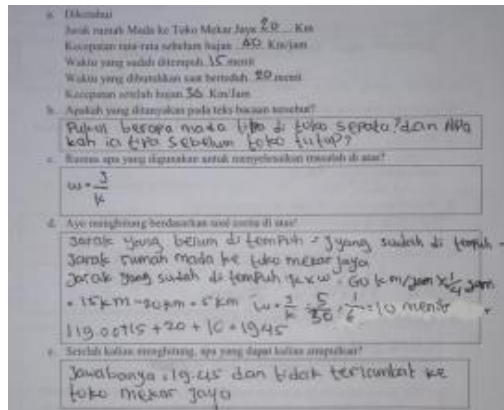 a. Diketahui
Jarak rumah Mada ke Toko Mekar Jaya 20 Km
Kecepatan rata-rata sebelum hujan 60 Km/jam
Waktu yang sudah ditempuh 15 menit
Waktu yang dibutuhkan saat berteduh 20 menit
Kecepatan setelah hujan 30 Km/Jam
b. Apakah yang ditanyakan pada teks bacaan tersebut?
Pukul berapa mada tiba di toko sepatu? dan Apa
kah ia tiba sebelum toko tutup?
c. Rumus apa yang digunakan untuk menyelesaikan masalah di atas?
w = J/K
d. Ayo menghitung berdasarkan soal cerita di atas!
Jarak yang belum di tempuh = J yang sudah di tempuh -
Jarak rumah mada ke toko mekar jaya
Jarak yang sudah di tempuh = k x w = 60 km/jam x 1/4 jam
= 15 km - 20 km = 5 km w = J/K = 5/30 = 1/6 = 10 menit
19.00 + 15 + 20 + 10 = 19.45
e. Setelah kalian menghitung, apa yang dapat kalian simpulkan?
Jawabanya = 19.45 dan tidak terlambat ke
toko mekar jaya